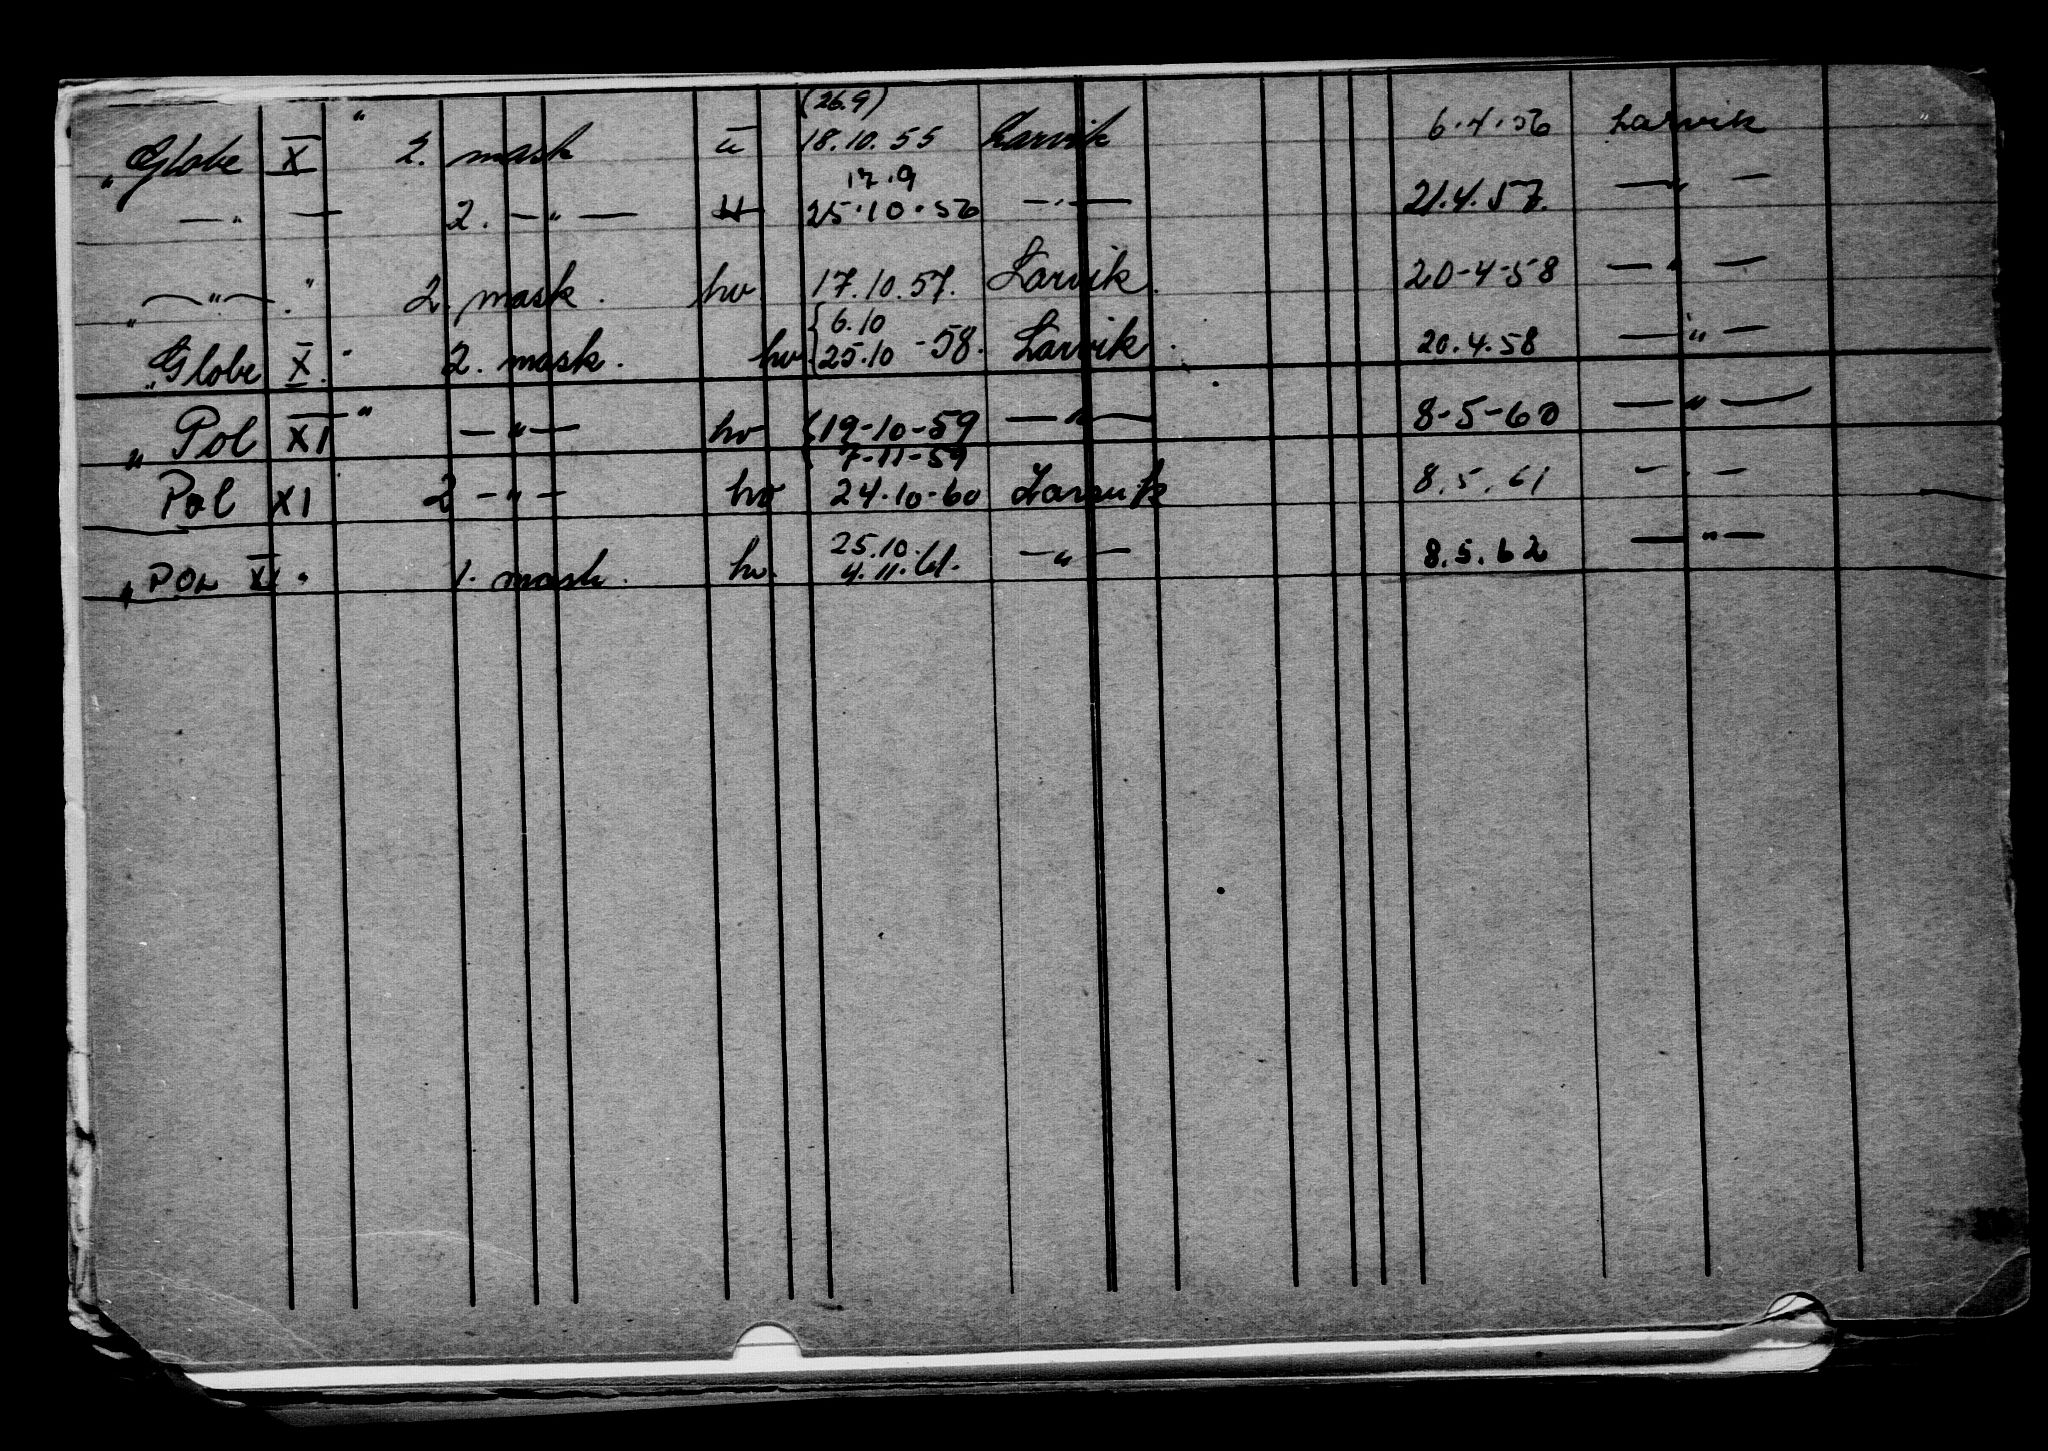 (26.9)
„Globe X“ 2. mask u 18.10.55 Larvik 6.4.56 Larvik
17.9
—„— 2. —„— u 25.10.56 —„— 21.4.57. —„—
„—„—.“ 2. mask. hv 17.10.57. Larvik. 20-4-58 —„—
„Globe X.“ 2. mask. hv. {6.10 25.10 -58. Larvik. 20.4.58 —„—
„Pol XI“ —„— hv (19-10-59 —„— 8-5-60 —„—
7-11-59
Pol XI 2 —„— hv 24.10-60 Larvik 8.5.61 —„—
25.10.
„POL XI“ 1. mask. hv. 4.11.61. —„— 8.5.62 —„—